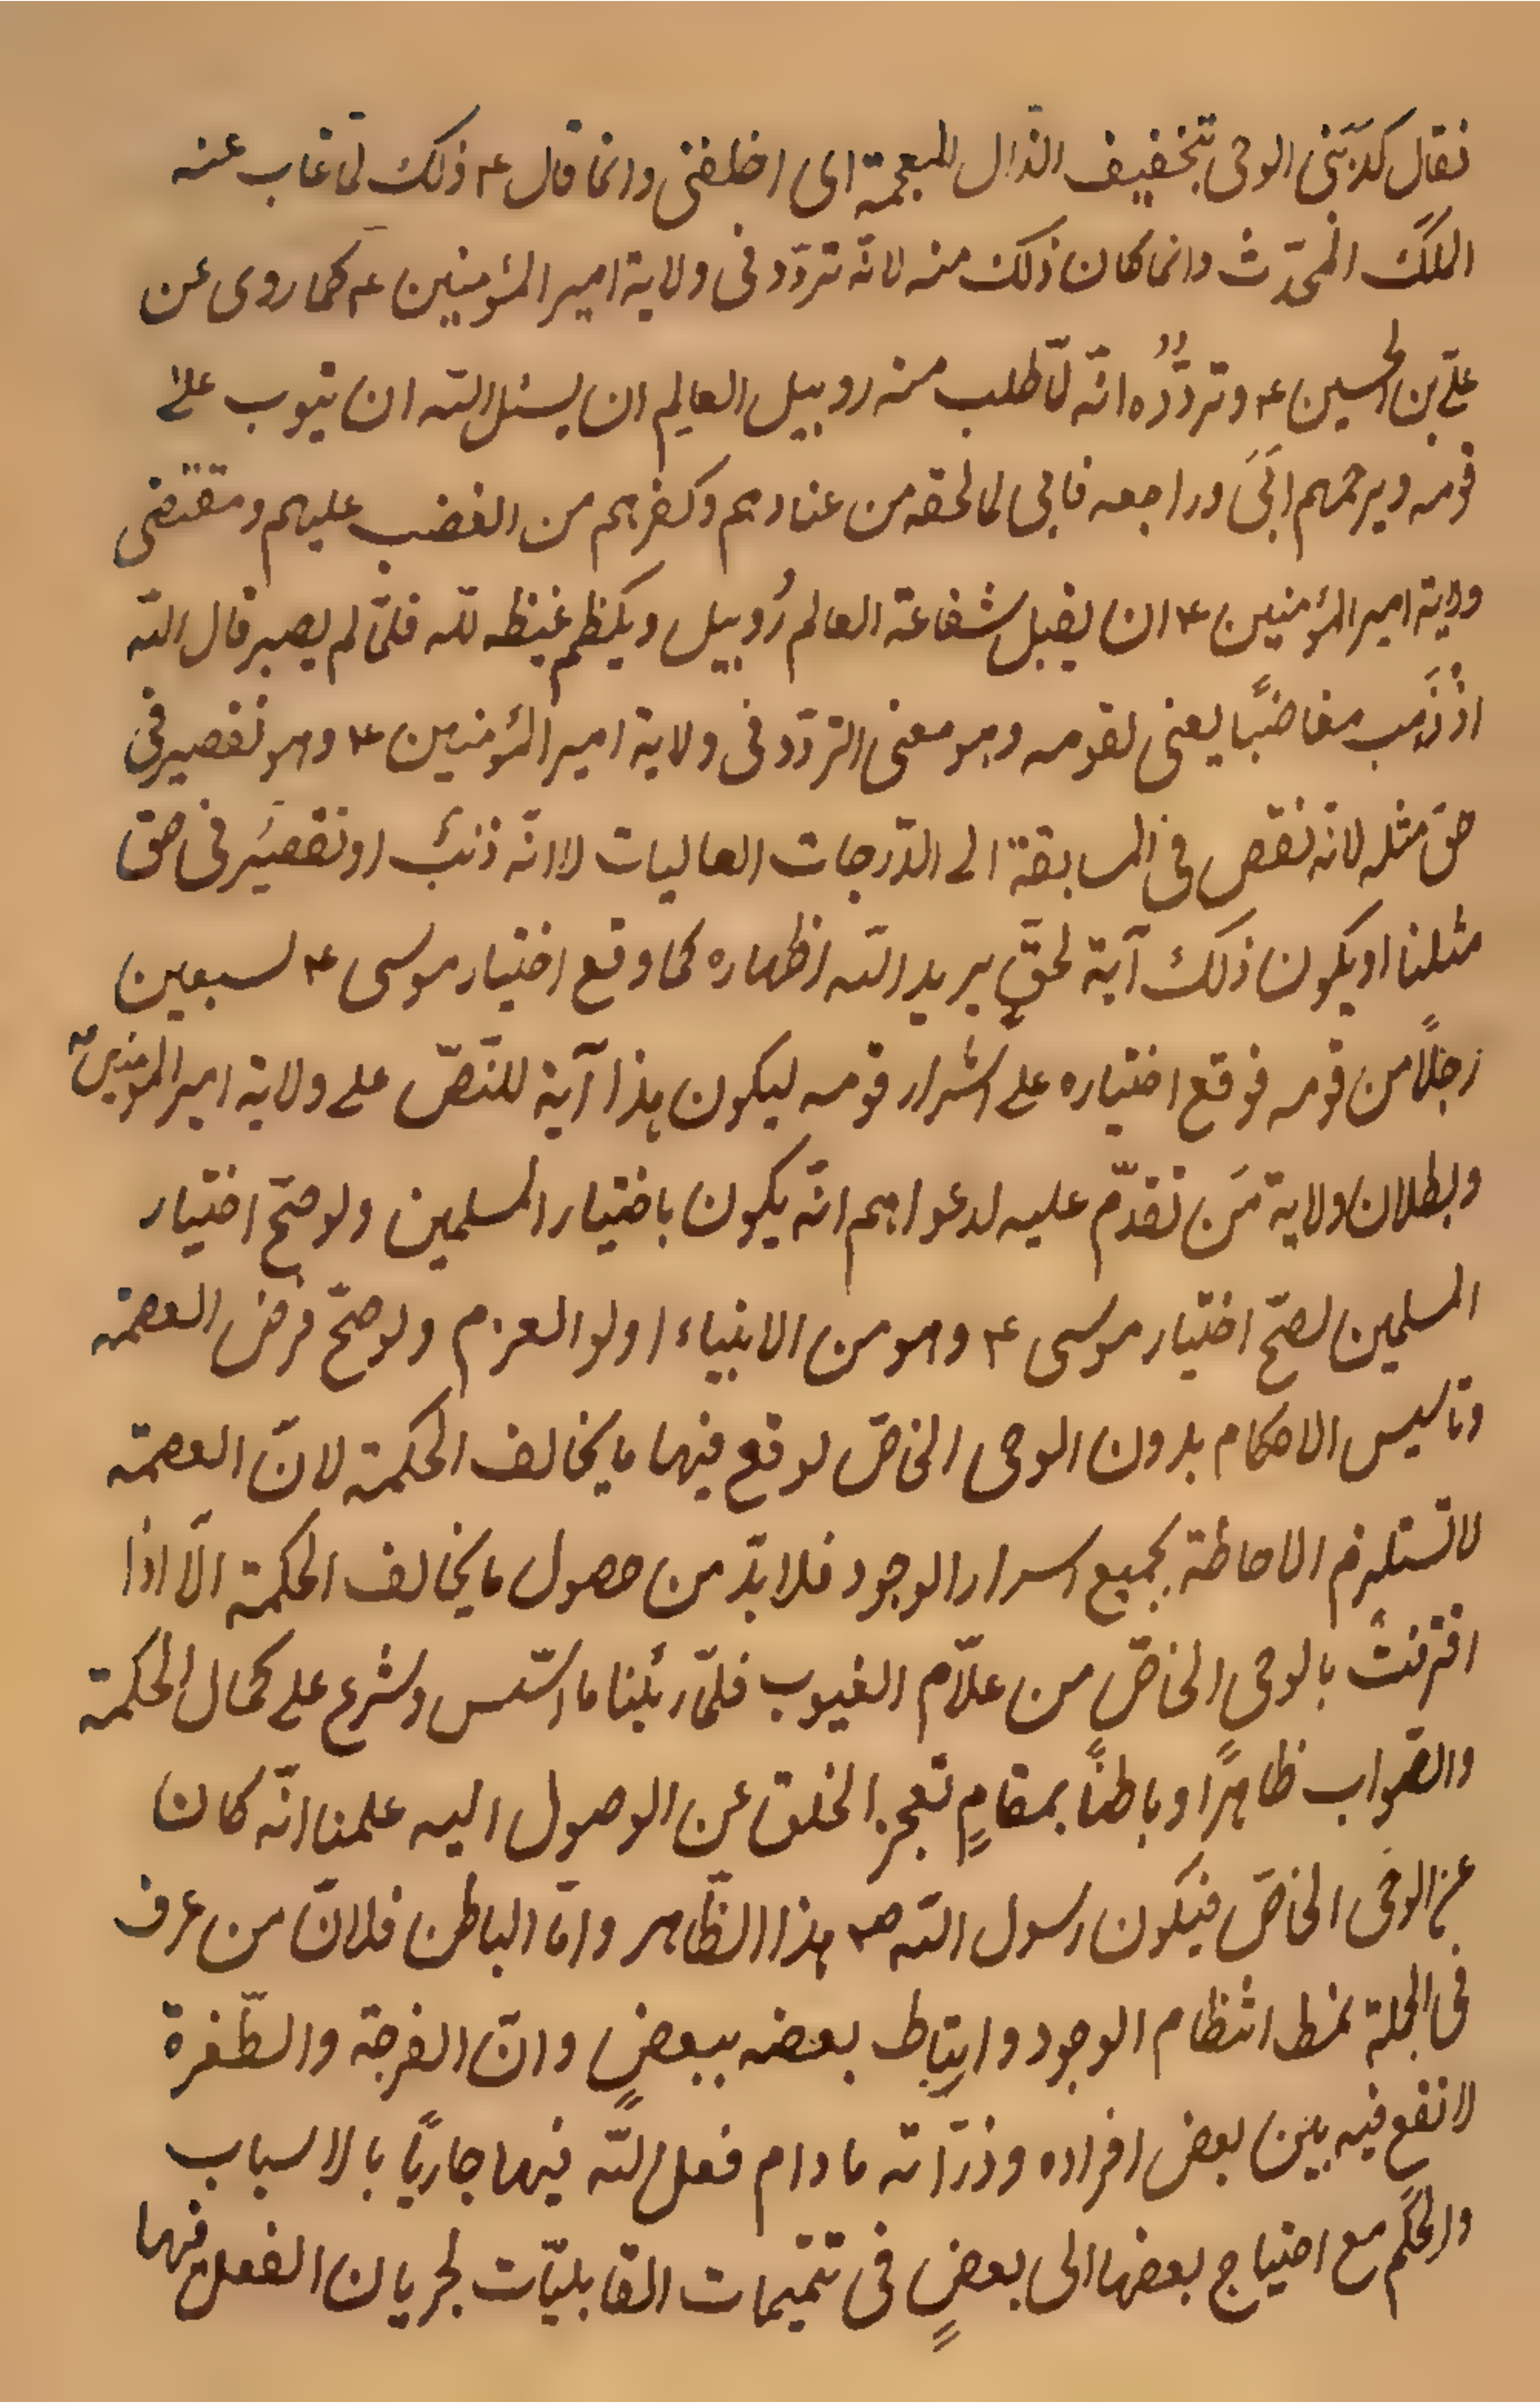 فقال كذبَني الوحى بتخفيف الذّال المعجمة اى اخلفنى وانّما قال ع ذلك لمّا غاب عنه
الملَك المحدّث وانّما كان ذلك منه لانّه تردّد فى ولاية امير المؤمنين ع كما روى عن
علىّ بن الحسين ع وتردّدُه انّه لمّا طلب منه روبيل العالم ان يسئل اللّه ان يتوب على
قومه ويرحمهم ابَىَ وراجعه فابى لما لحقه من عنادهم وكفرهم من الغضب عليهم ومقتضى
ولاية امير المؤمنين ع ان يقبل شفاعة العالم رُوبيل ويكظم غيظه للّه فلمّا لم يصبر قال اللّه
اذْ ذَهب مغاضبًا يعنى لقومه وهو معنى التردّد فى ولاية امير المؤمنين ع وهو تقصير فى
حقّ مثله لانّه نقص فى المسابقة الى الدّرجات العاليات لا انّه ذنبٌ او تقصيرٌ فى حقّ
مثلنا او يكون ذلك آية لحقٍّ يريد اللّه اظهاره كما وقع اختيار موسى ع لسبعين
رجلًا من قومه فوقع اختياره على اشرار قومه ليكون هذا آية للنّصّ على ولاية امير المؤمنين ع
وبطلان ولاية مَن تقدّم عليه لدعواهم انّه يكون باختيار المسلمين ولو صحّ اختيار
المسلمين لصحّ اختيار موسى ع وهو من الانبياء اولو العزم ولو صحّ فرض العصمة
وتأسيس الاحكام بدون الوحى الخاصّ لوقع فيها ما يخالف الحكمة لانّ العصمة
لا تستلزم الاحاطة بجميع اسرار الوجود فلا بدّ من حصول ما يخالف الحكمة الّا اذا
اقترنتْ بالوحى الخاصّ من علّام الغيوب فلمّا رئينا ما اسّس وشرع على كمال الحكمة
والصّواب ظاهرًا وباطنًا بمقامٍ تعجز الخلق عن الوصول اليه علمنا انّه كان
عن الوحى الخاصّ فيكون رسول اللّه ص هذا الظّاهر وامّا الباطن فلانّ من عرف
فى الجملة نمط انتظام الوجود وارتباط بعضه ببعضٍ وانّ الفرجة والطّفرة
لا تقع فيه بين بعض افراده وذرّاته ما دام فعل اللّه فيها جاريًا بالاسباب
والحِكَم مع احتياج بعضها الى بعضٍ فى تتميمات القابليّات لجريان الفعل فيها